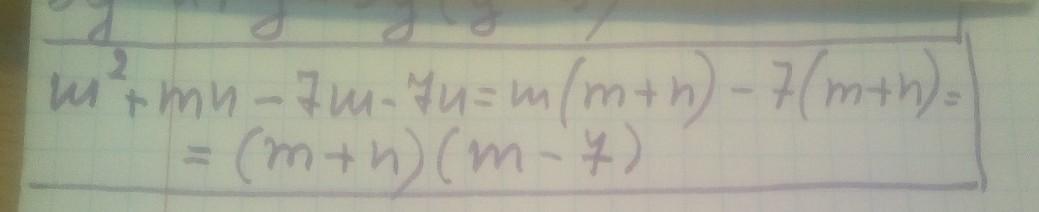 m²+mn-7m-7n=m(m+n)-7(m+n)=
=(m+n)(m-7)